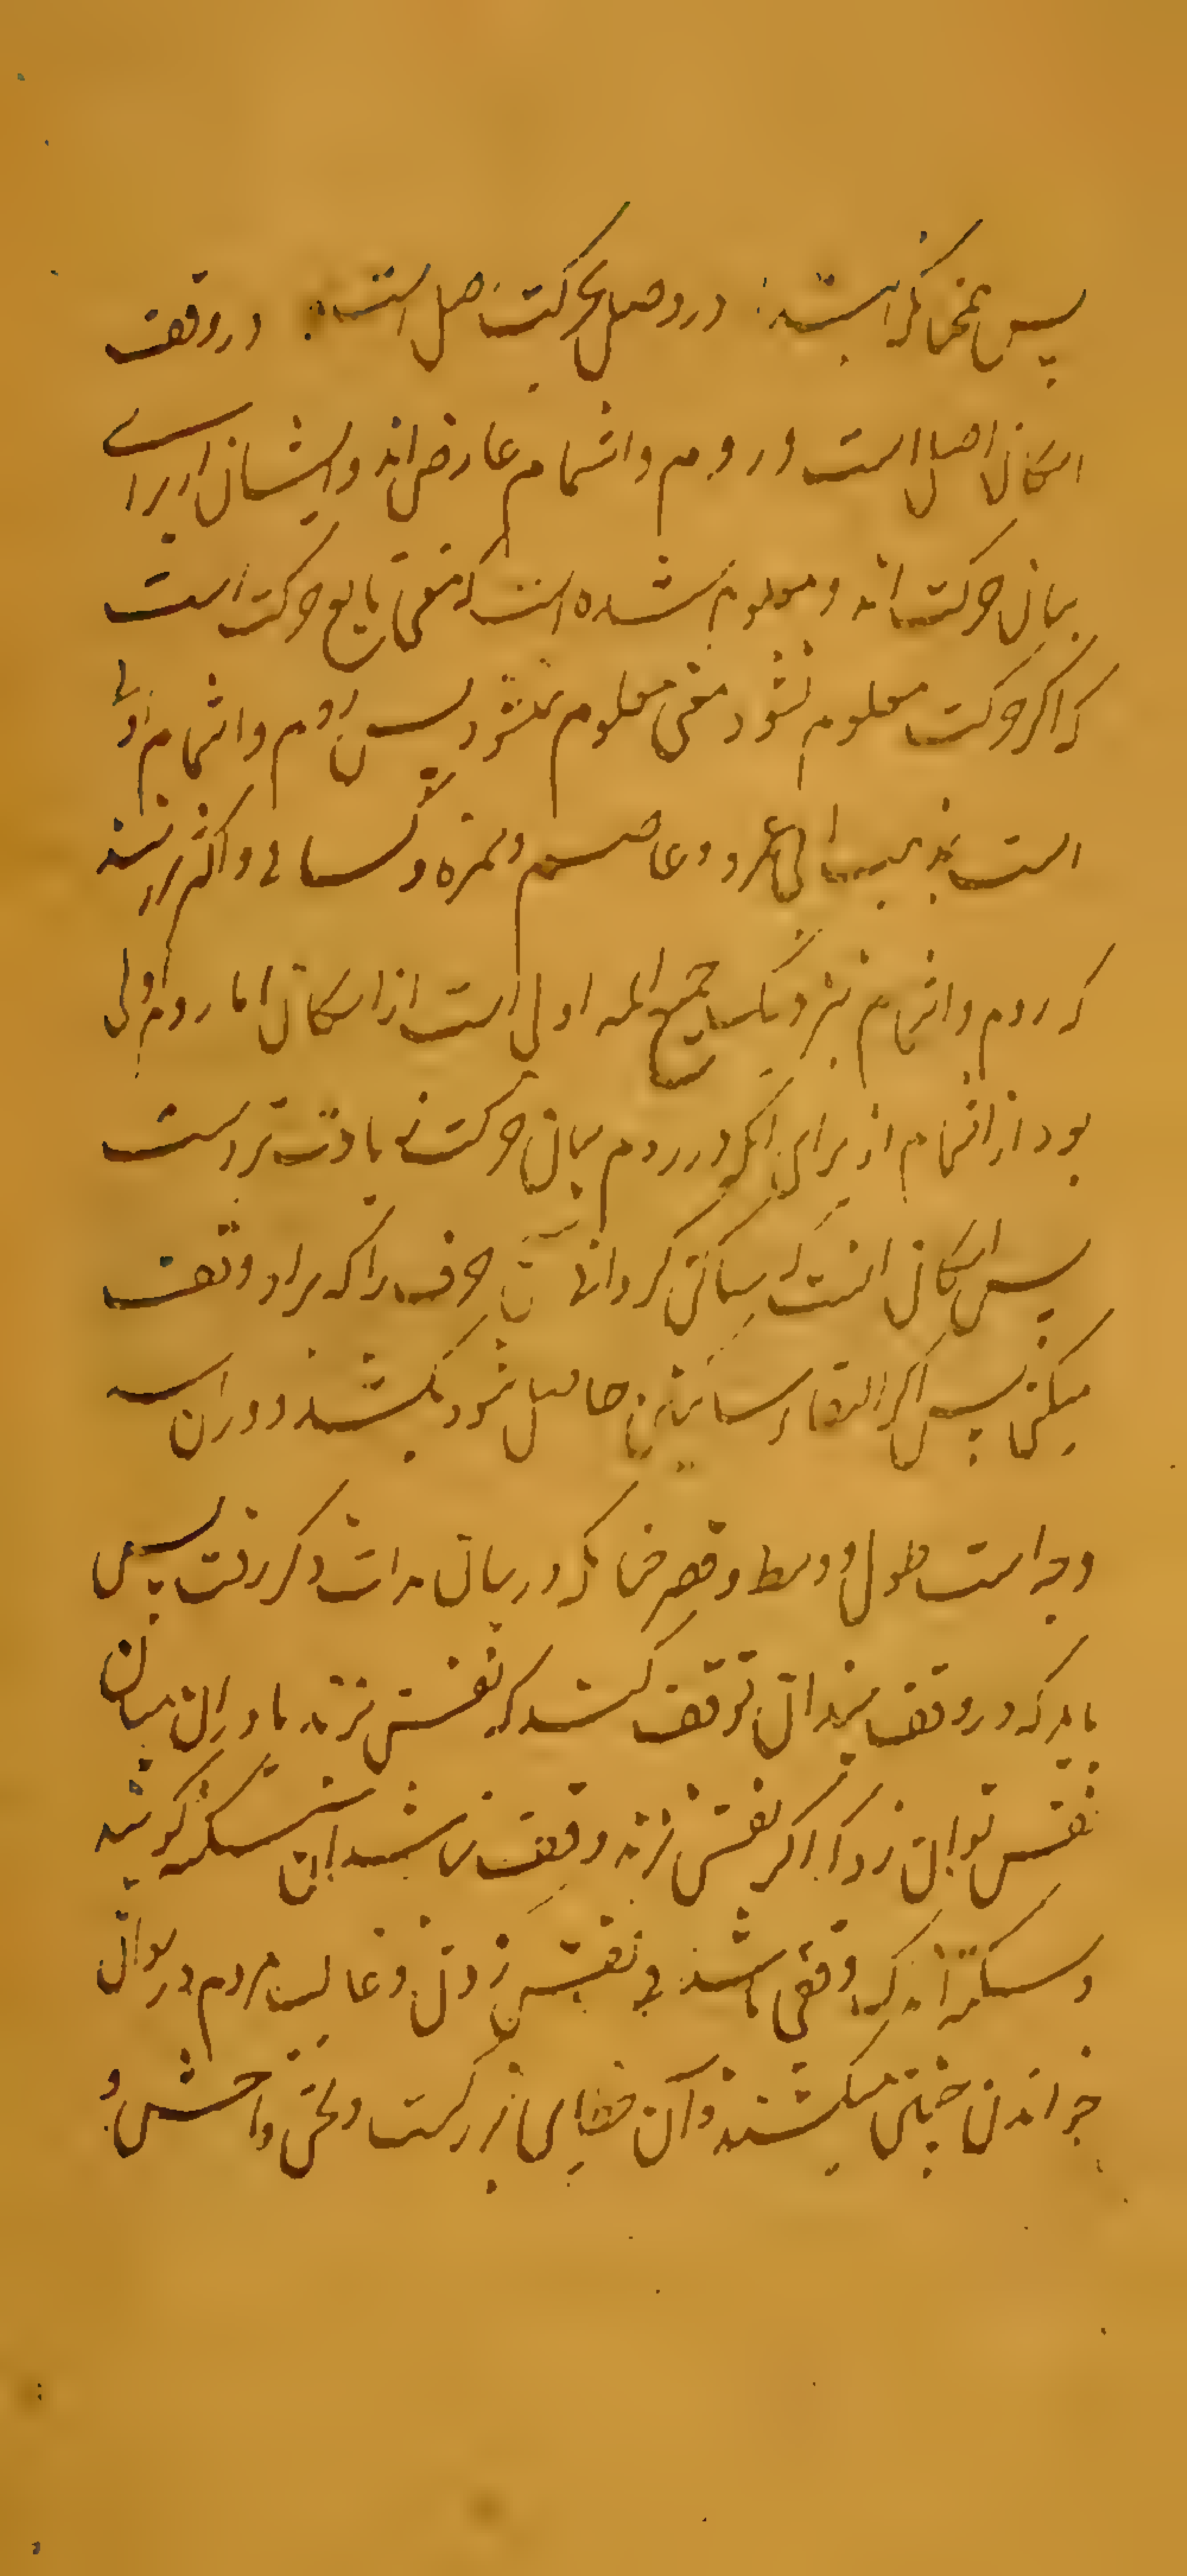 پس همچنانکه ابتدا در وصل بحرکت اصل است در وقف
اسکان اصل است و روم و اشمام عارض اند و ایشان از برای
بیان حرکت اند و معلوم شده است که معنی تابع حرکت است
که اگر حرکت معلوم نشود معنی معلوم نشود پس روم و اشمام اولی
است بمذهب ابی عمرو و عاصم و حمزه و کسائی و اکثر برانند
که روم و اشمام بنزدیک جمیع ائمه اولی است از اسکان اما روم اولی
بود از اشمام از برای آنکه در روم بیان حرکت زیادت تر است
پس اسکان آنست که ساکن گردانی آن حرف را که برو وقف
میکنی پس اگر التقاء ساکنین حاصل شود بکشند و در آن سه
وجه است طول و وسط و قصر چنانکه در بیان مدات ذکر رفت پس
باید که در وقف چندان توقف کنند که نفس زند یا در آن میان
نفس توان زد اما اگر نفس نزند وقف نباشد آن سکته گویند
و سکته اندک وقفی باشد بی نفس زدن و غالب مردم در
خواندن میکشند و آن خطای بزرگست و لحنی فاحش و